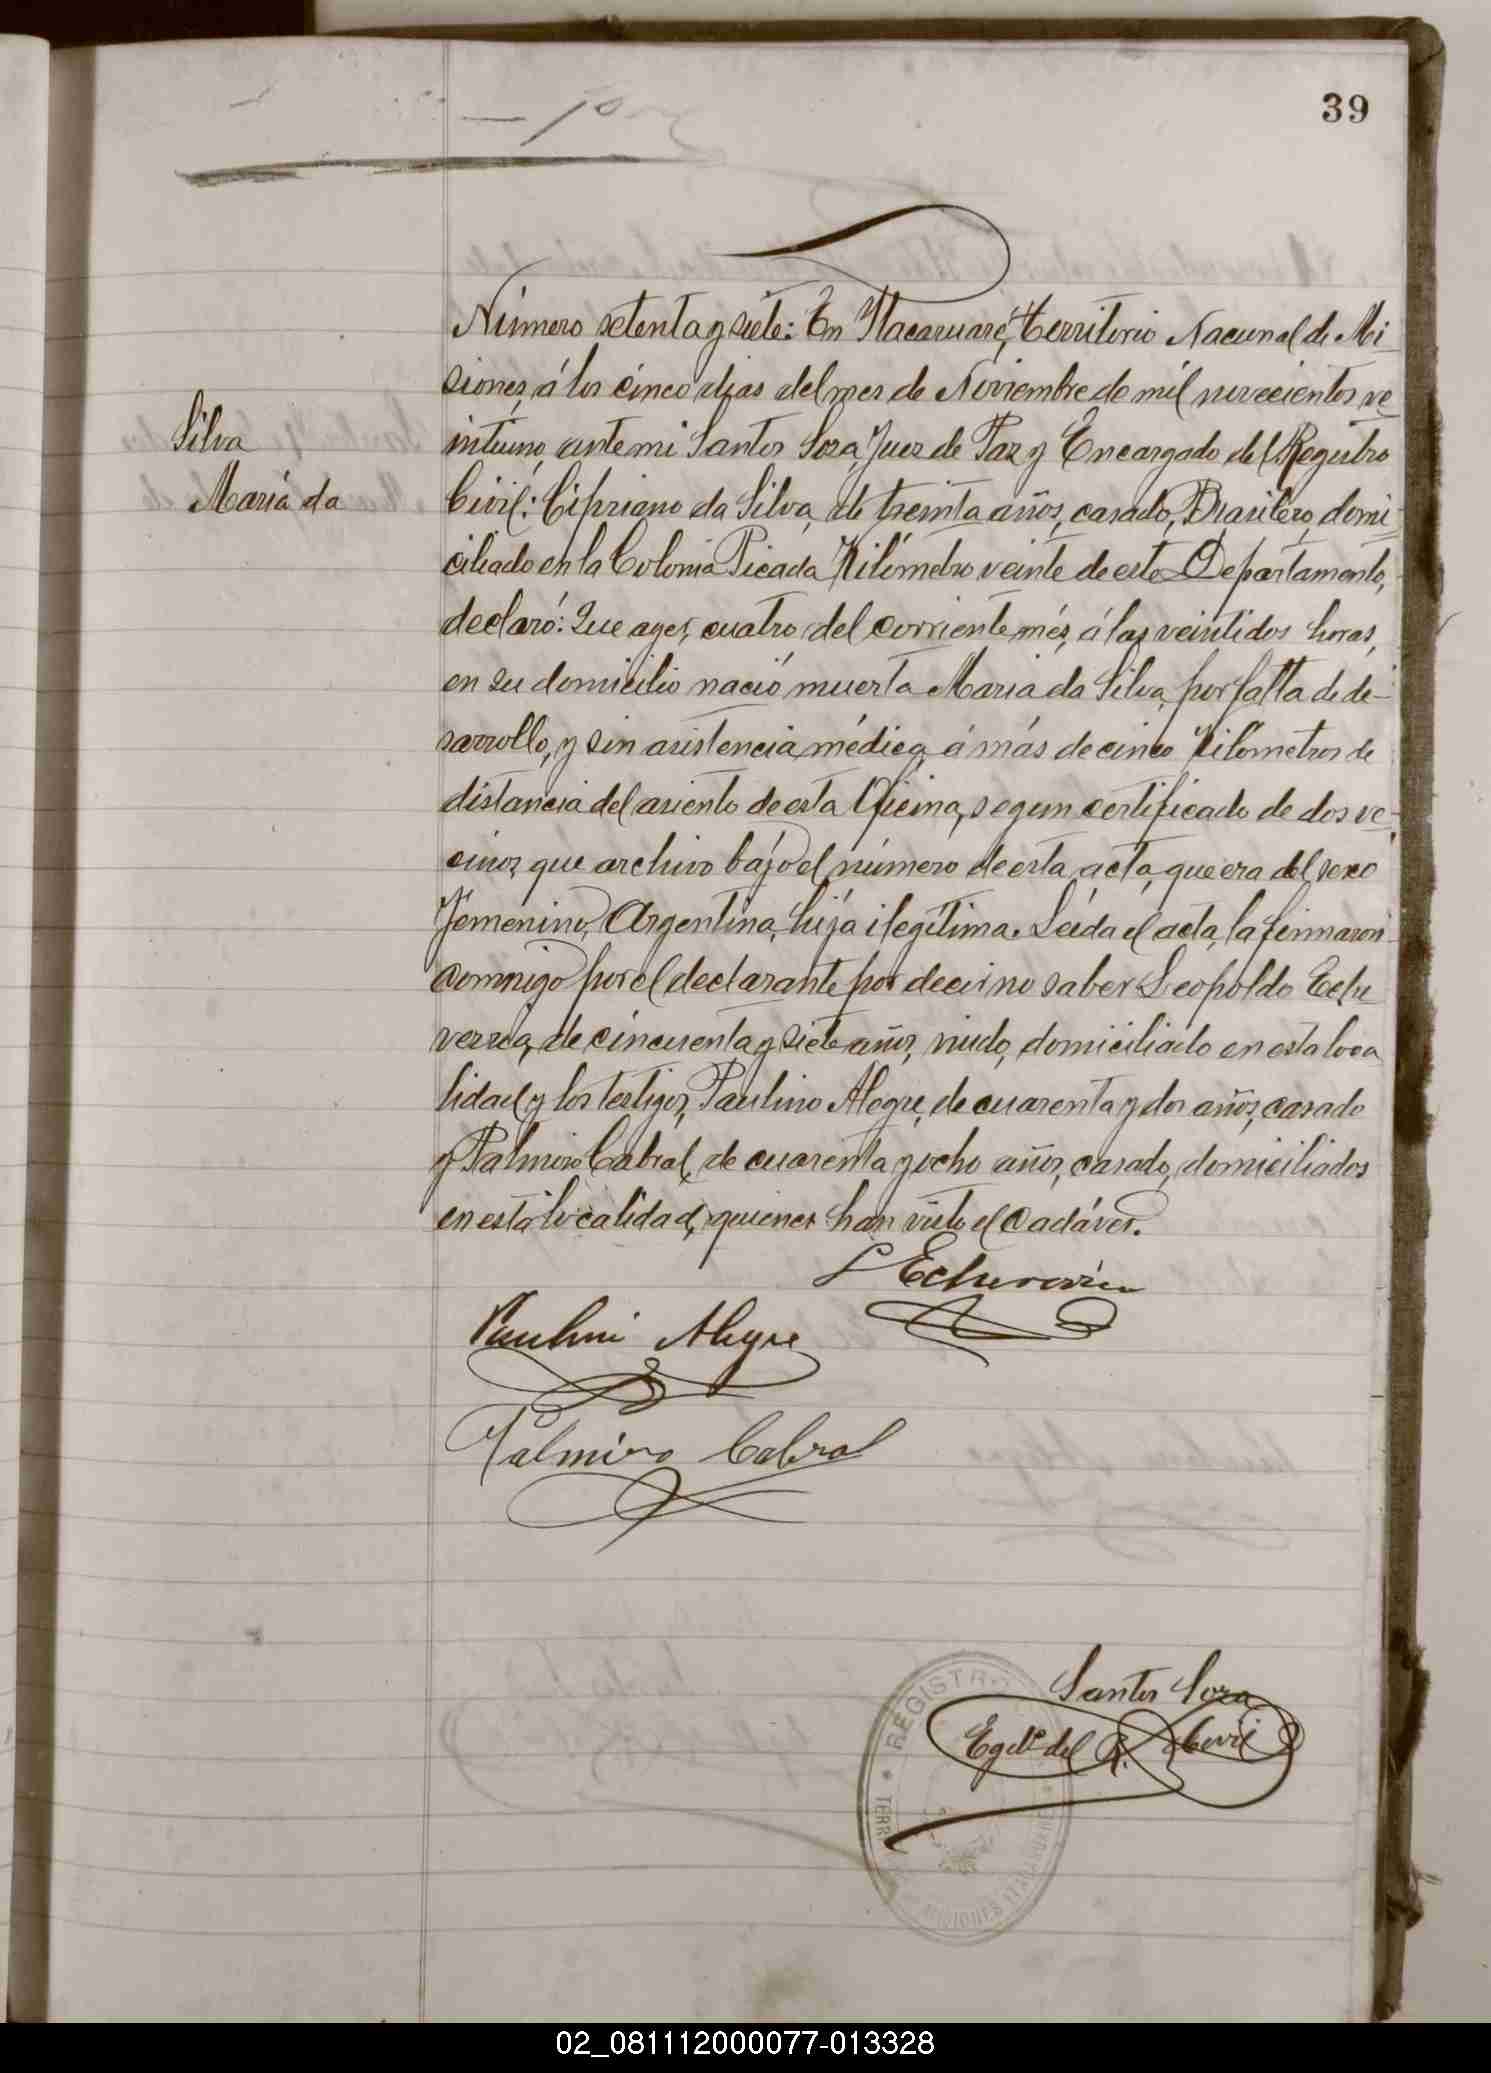 39
Número setenta y siete: En Itacaruaré, Territorio Nacional de Mi-
siones, á los cinco dias del mes de Noviembre de mil novecientos ve-
Silva
intiuno, ante mi Santos Soza, Juez de Paz y Encargado del Registro
María da
Civil: Cipriano da Silva, de treinta años, casado, Brasilero, domi-
ciliado en la Colonia Picada Kilómetro veinte de este Departamento,
declaró: Que ayer, cuatro del corriente més, á las veintidos horas,
en su domicilio nació muerta María da Silva, por falta de de-
sarrollo, y sin asistencia médica, á más de cinco Kilómetros de
distancia del asiento de esta Oficina, segun certificado de dos ve-
cinos, que archivo bajo el número de esta acta, que era del sexo
Femenino, Argentina, hija ilegítima. Leída el acta, la firmaron
conmigo por el declarante por decir no saber Leopoldo Eche
verria, de cincuenta y siete años, viudo, domiciliado en esta loca
lidad y los testigos, Paulino Alegre, de cuarenta y dos años, casado
y Palmiro Cabral, de cuarenta y ocho años, casado, domiciliados
en esta localidad, quienes han visto el cadáver.
L Echeverria
Paulino Alegre
Palmiro Cabral
Santos Soza
Egdo. del R. Civil
REGISTRO
TERR
MISIONES ITACARUARÉ
02_081112000077-013328